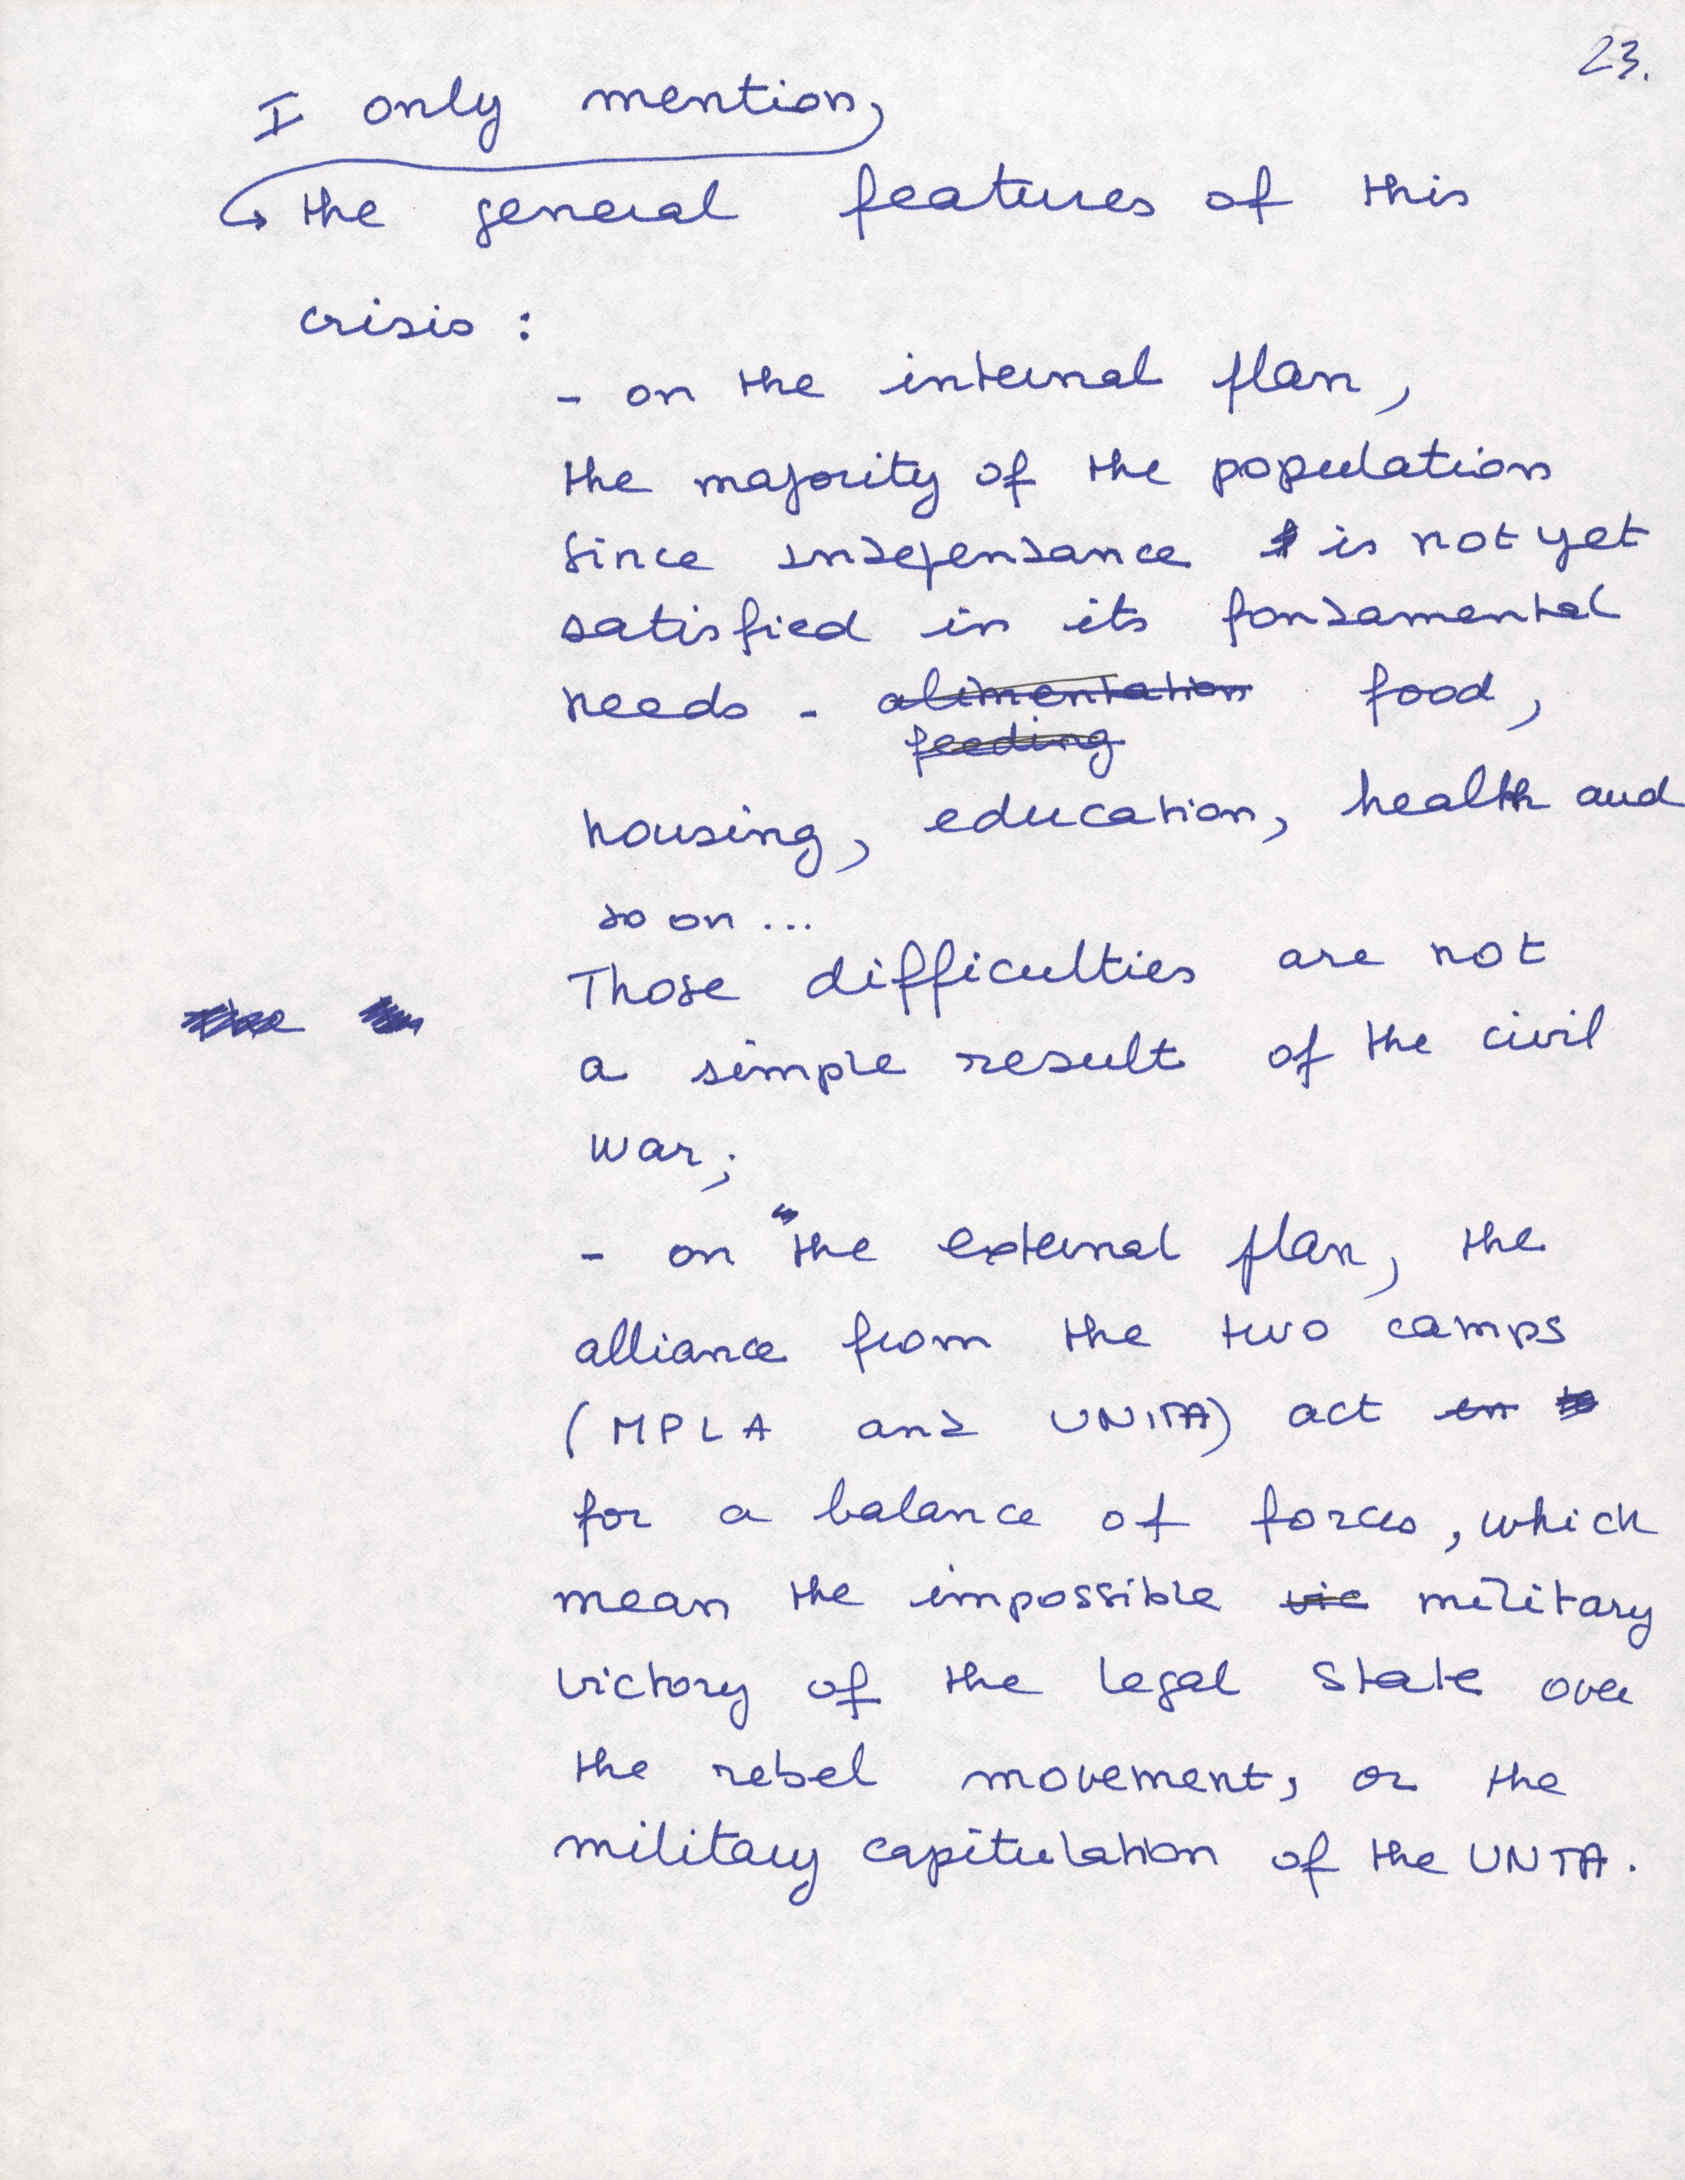 23.
I only mention,
the general features of this
crisis :
- on the internal plan,
the majority of the population
since independance is not yet
satisfied in its fondamental
needs - alimentation food,
feeding
housing, education, health and
so on ...
Those difficulties are not
a simple result of the civil
war;
- on the external plan, the
alliance from the two camps
(MPLA and UNITA) act in
for a balance of forces, which
mean the impossible vic military
victory of the legal State over
the rebel movement, or the
military capitulation of the UNTA.